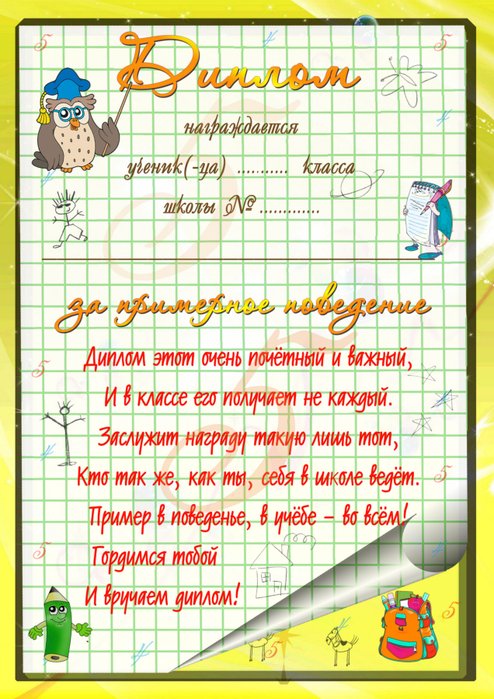 Диплом
награждается
ученик(-ца) ........... класса
школы №.............
за примерное поведение
Диплом этот очень почётный и важный,
И в классе его получает не каждый.
Заслужит награду такую лишь тот,
Кто так же, как ты, себя в школе ведёт.
Пример в поведенье, в учёбе – во всём!
Гордимся тобой
И вручаем диплом!